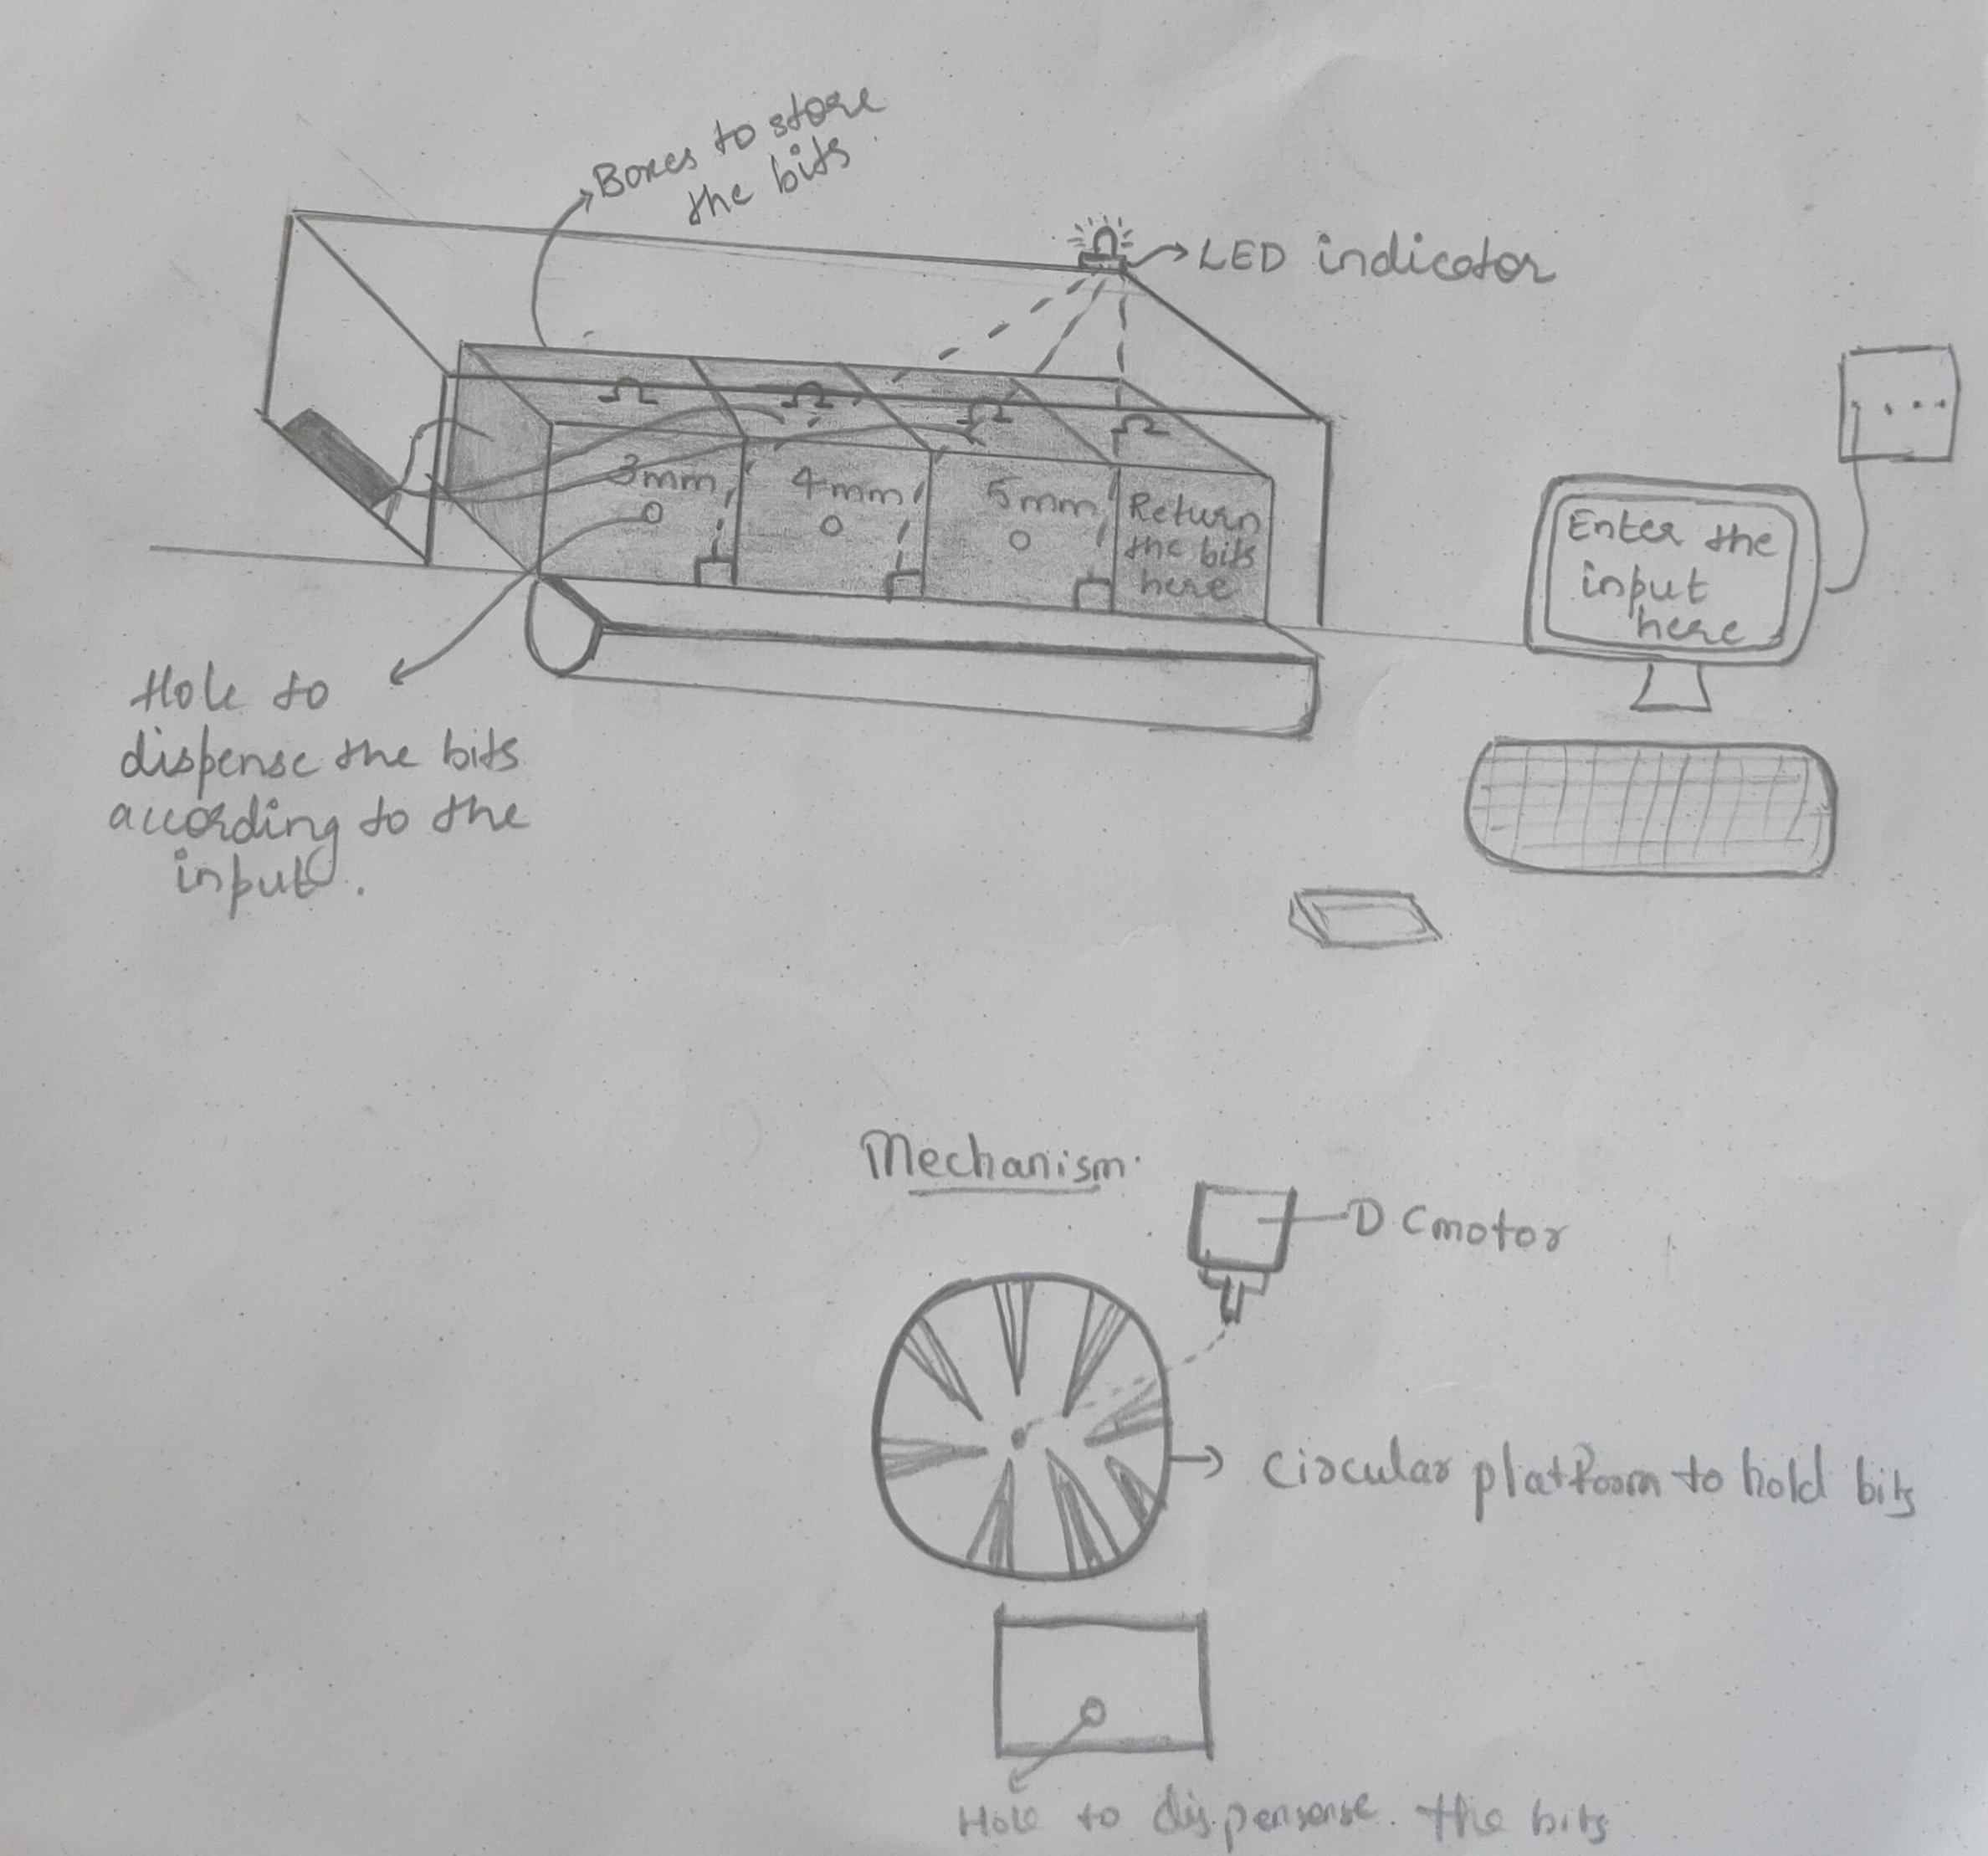 Boxes to store
the bits.
LED indicator
3mm
4mm
5mm
Return
the bits
here
Enter the
input
here
Hole to
dispense the bits
according to the
input.
Mechanism.
DC motor
Circular platform to hold bits
Hole to dispensense. the bits